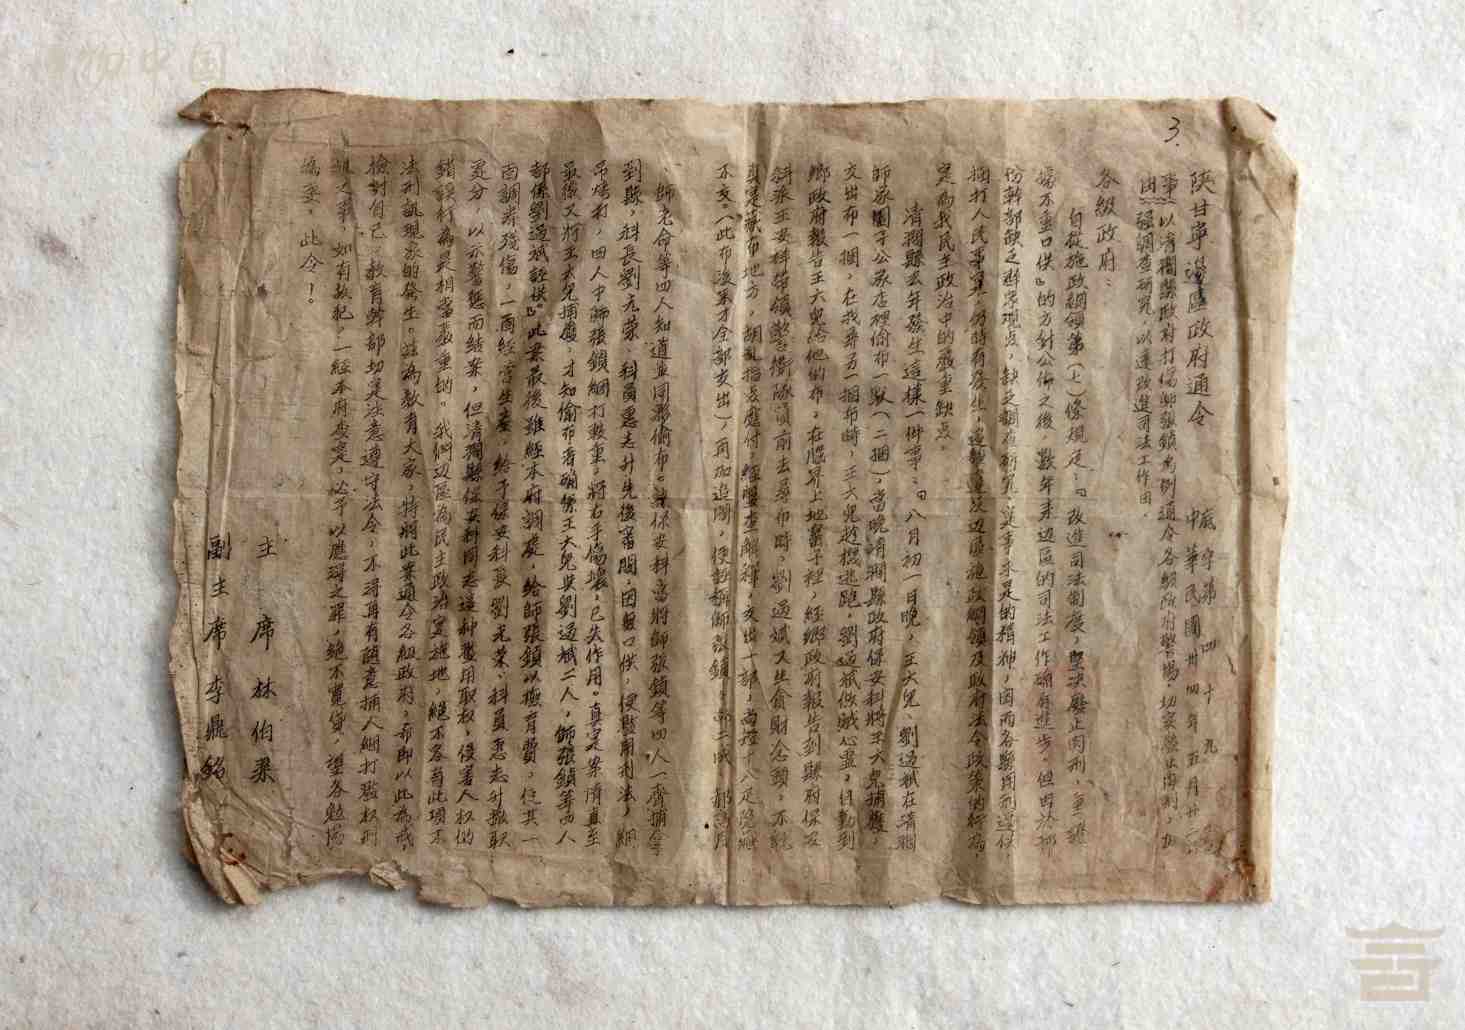 3.
陕甘寧邊區政府通令
底字第四十九
中華民國卅四年五月廿
事以清澗縣政府打傷師張鎖為例通令各級政府警惕，切实廢止肉刑，加
由强調查研究，以進改進司法工作由。
各級政府：
自從施政綱領第（七）條規定：『改進司法制度，坚决廢止肉刑，重證
據不重口供』的方針公佈之後，数年来边區的司法工作確有進步。但毋法部
份幹部缺乏群众观点，缺乏調查研究，实事求是的精神，因而各縣用刑逼供，
捆打人民事実，仍時有發生，這種違反边區施政綱領及政府法令政策的行為，
実為我民主政治中的嚴重缺点。
清澗縣去年發生這樣一件事：『八月初一日晚，王大兒、劉過斌在清澗
師家園子公家店裡偷布一馱（二捆），當晚清澗縣政府保安科將王大兒捕獲，
交出布一捆，在找尋另一捆布時，王大兒趁機逃跑，劉過斌做賊心虛，自動到
鄉政府報告王大兒給他的布，在腦畔上地窖子裡，經鄉政府報告到縣府保安
科派王安科帶領警衛隊員前去尋布時，劉過斌又生貪財念頭，不説
真实藏布地方，胡乱指丢應付，經盤查解釋，交出一部，尚差十八疋隐瞒
不交。（此布後来才全部交出），再加追問，便誣賴師張鎖、
師克命等四人知道並同夥偷布。該保安科當將師張鎖等四人一齊捕拿
到縣，科長劉光荣、科員惠志升先後審問，因無口供，便濫用刑法，綑
吊烤打，四人中師張鎖綑打最重，將右手傷壞，已失作用。真实案情直至
最後又將王大兒捕獲，才知偷布者確係王大兒與劉過斌二人，師張鎖等四人
都係劉過斌誣供。』此案最後雖經本府調處，給師張鎖以撫育費，使其一
面調养殘傷，一面經营生產，給予保安科長劉光荣、科員惠志升撤职
处分，以示警惩而結案，但清澗縣保安科同志這种濫用职权，侵害人权的
錯誤行為是相當嚴重的。我們边區為民主政治实施地，絕不容許此項不
法刑訊現象的發生。兹為教育大家，特將此案通令各級政府，希即以此為戒
檢討自己，教育幹部切实注意遵守法令，不得再有随意捕人綑打濫权刑
訊之事，如有故犯，一經本府查实，必予以應得之罪，絕不寬貸，望各勉勵
為要，此令！。
主席 林伯渠
副主席 李鼎銘